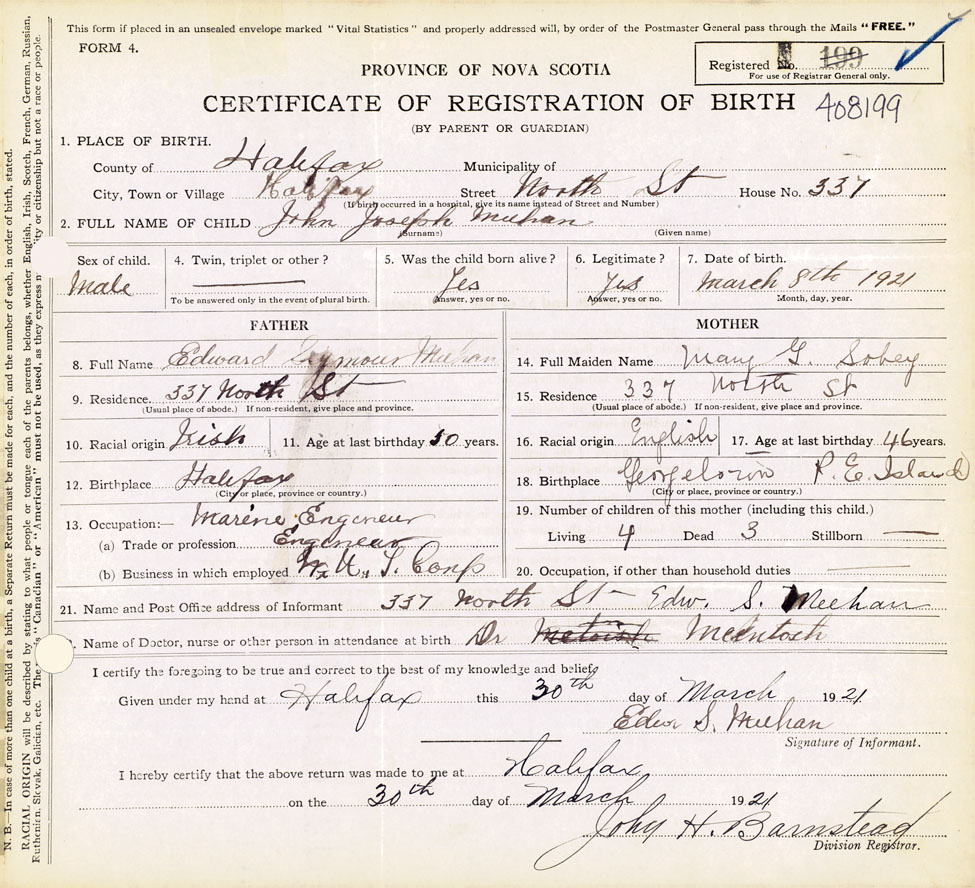 This form if placed in an unsealed envelope marked "Vital Statistics" and properly addressed will, by order of the Postmaster General pass through the Mails "FREE."
FORM 4.
Registered No. 199
For use of Registrar General only.
PROVINCE OF NOVA SCOTIA
CERTIFICATE OF REGISTRATION OF BIRTH 408199
(BY PARENT OR GUARDIAN)
1. PLACE OF BIRTH.
County of Halifax Municipality of
City, Town or Village Halifax Street North St House No. 337
(If birth occurred in a hospital, give its name instead of Street and Number)
2. FULL NAME OF CHILD John Joseph Meehan
(Surname) (Given name)
Sex of child. 4. Twin, triplet or other? 5. Was the child born alive? 6. Legitimate? 7. Date of birth.
Male Yes Yes March 8th 1921
To be answered only in the event of plural birth. Answer, yes or no. Answer, yes or no. Month, day, year.
FATHER
8. Full Name Edward Seymour Meehan
9. Residence 337 North St
(Usual place of abode.) If non-resident, give place and province.
10. Racial origin Irish 11. Age at last birthday 50 years.
12. Birthplace Halifax
(City or place, province or country.)
13. Occupation:— Marine Engeneur
(a) Trade or profession Engeneur
(b) Business in which employed W. U. T. Corp
MOTHER
14. Full Maiden Name Mary G. Sobey
15. Residence 337 North St
(Usual place of abode.) If non-resident, give place and province.
16. Racial origin English 17. Age at last birthday 46 years.
18. Birthplace Georgetown P. E. Island
(City or place, province or country.)
19. Number of children of this mother (including this child.)
Living 4 Dead 3 Stillborn —
20. Occupation, if other than household duties —
21. Name and Post Office address of Informant 337 North St - Edw. S. Meehan
2. Name of Doctor, nurse or other person in attendance at birth Dr McIntosh
I certify the foregoing to be true and correct to the best of my knowledge and belief.
Given under my hand at Halifax this 30th day of March 1921
Edw S. Meehan
Signature of Informant.
I hereby certify that the above return was made to me at Halifax
on the 30th day of March 1921
John H. Barnstead
Division Registrar.
N. B.—In case of more than one child at a birth, a Separate Return must be made for each, and the number of each, in order of birth, stated.
RACIAL ORIGIN will be described by stating to what people or tongue each of the parents belongs, whether English, Irish, Scotch, French, German, Russian,
Ruthenian, Slovak, Galician, etc. The "Canadian" or "American" must not be used, as they express ity or citizenship but not a race or people.